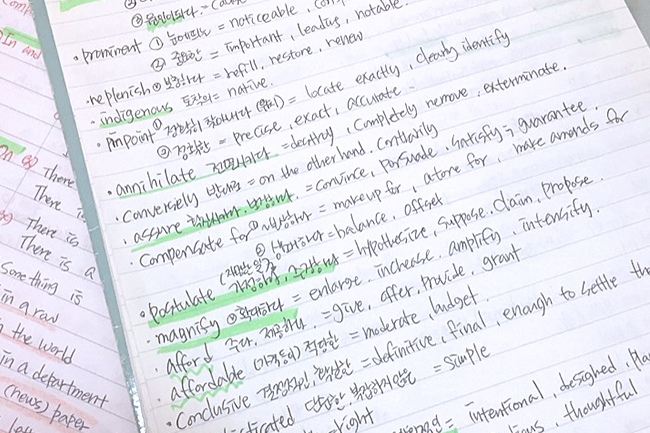 · prominent ① 눈에띄는 = noticeable,
② 중요한 = important, leading, notable.
· replenish ⊙ 보충하다 = refill, restore, renew
· indigenous 토착의 = native.
· pinpoint ① 정확히 찾아내다 = locate exactly, clearly identify
② 정확한 = precise, exact, accurate.
· annihilate 전멸시키다 = destroy, completely remove, exterminate.
· Conversely 반대로 = on the other hand, contrarily
· assure 확신하다, 보장하다. = convince, persuade, satisfy, guarantee.
· Compensate for ① 보상하다 = make up for, atone for, make amends for
② 상쇄하다 = balance, offset
· postulate 가정하다, 추정하다 = hypothesize, suppose, claim, propose.
· magnify ⊙ 확대하다 = enlarge, increase, amplify, intensify.
· afford 주다, 제공하다. = give, offer, provide, grant
· affordable (가격등이) 적당한 = moderate, budget.
· Conclusive 결정적인, 확실한 = definitive, final, enough to settle the
단순한, 복잡하지않은 = simple
= intentional, designed,
thoughtful
There
There is
There is
There is a
Something is
in a raw
the world
in a department
(news) paper